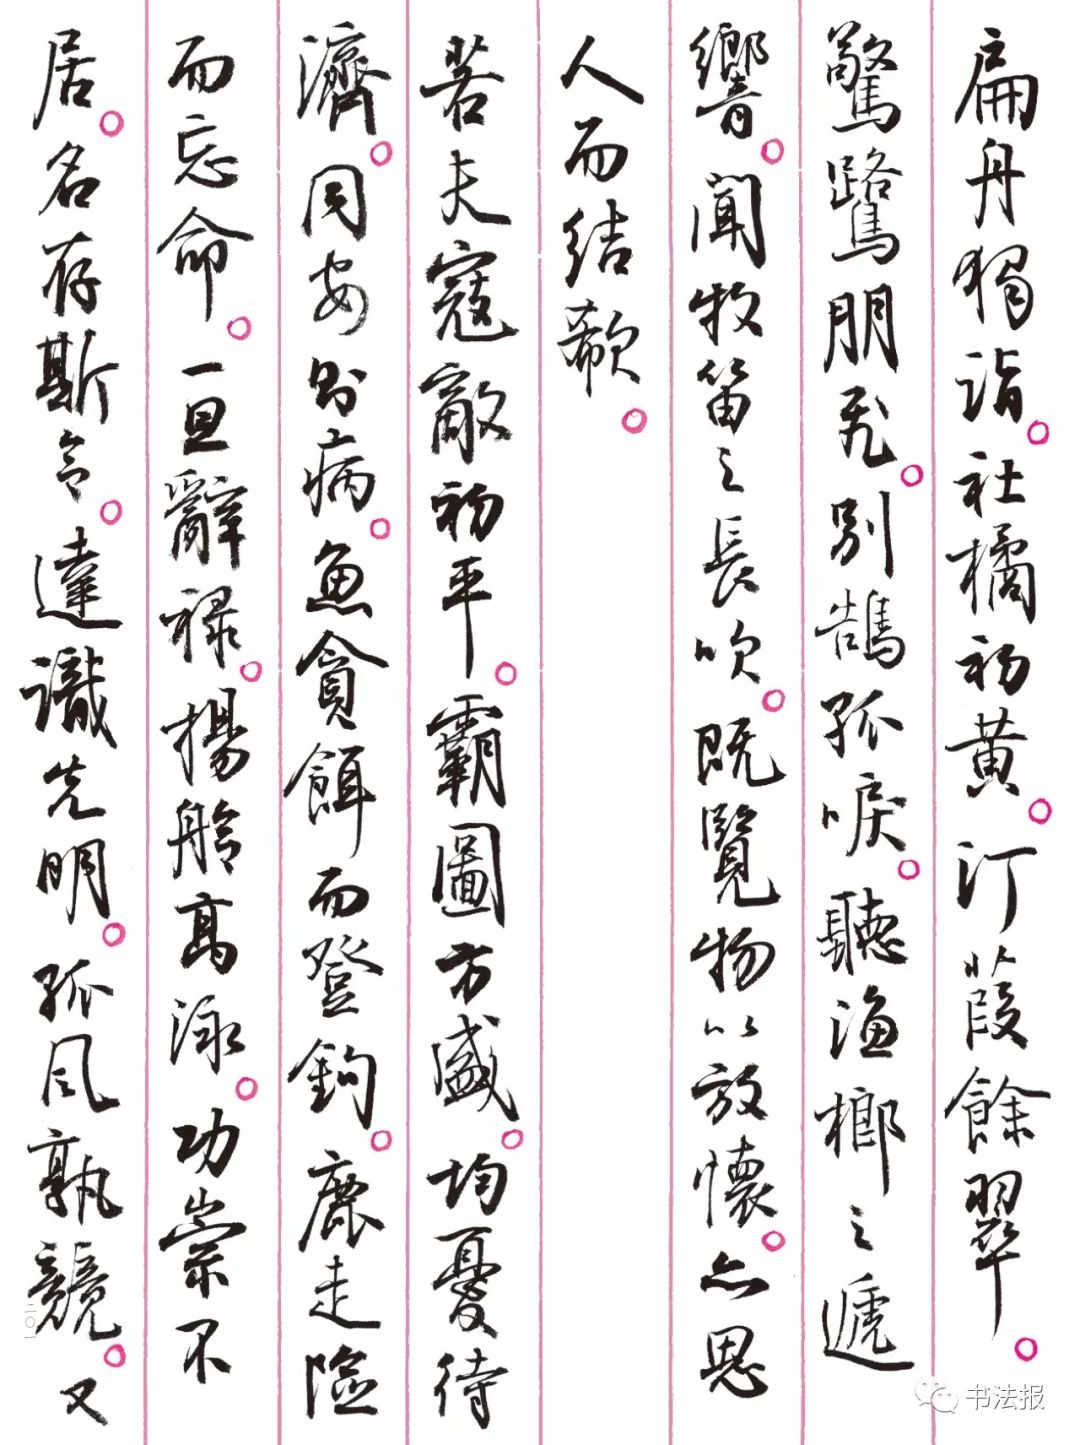 扁舟獨詣。社橘初黄。汀葭餘翠。
驚鷺朋飛。别鵠孤唳。聽漁榔之遞
響。聞牧笛之長吹。既覽物以放懷。亦思
人而結欷。
若夫寇敵初平。霸圖方盛。均憂待
濟。同安則病。魚貪餌而登鈎。鹿走險
而忘命。一旦辭禄。揚舲高泳。功崇不
居。名存斯令。達識先明。孤風孰競。又
二〇一
书法报